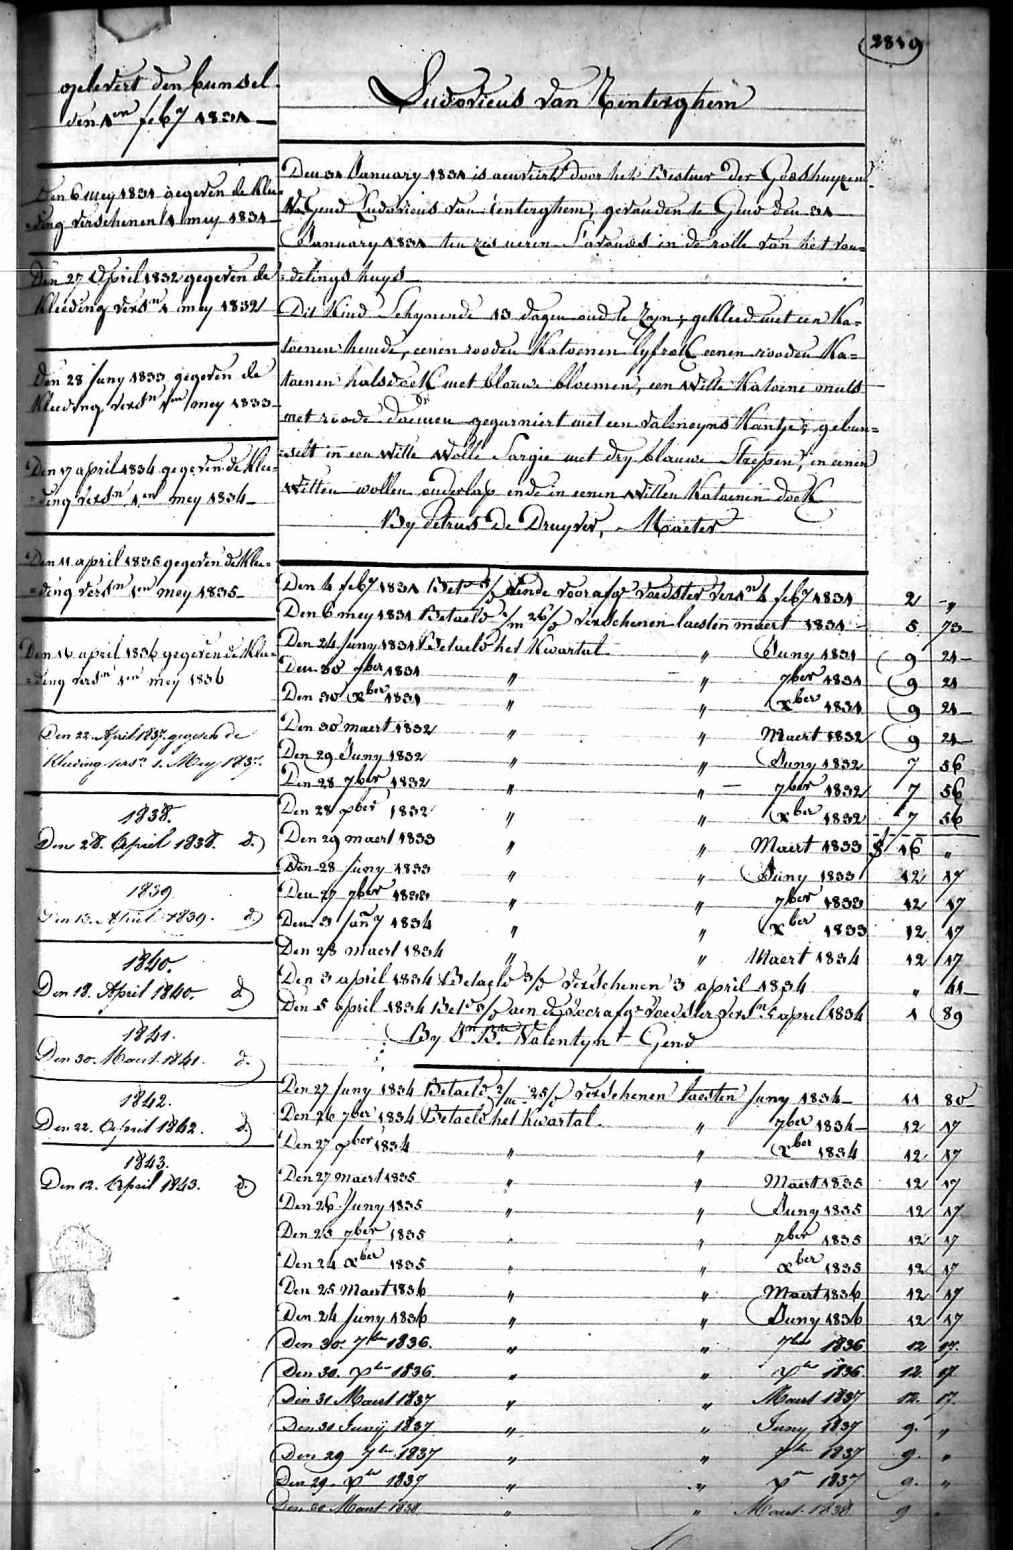 2819
gelevert den bunsel
den 1en feby 1831
Den 6 mey 1831 gegeven de klee=
=ding verschenen 1 mey 1831
Den 27 April 1832 gegeven de
kleeding versn 1 mey 1832
Den 28 juny 1833 gegeven de
kleeding versn 1en mey 1833
Den 17 april 1834 gegeven de klee=
=ding versn 1en mey 1834
Den 11 april 1835 gegeven de klee=
=ding versn 1en mey 1835
Den 16 april 1836 gegeven de klee=
=ding versn 1en mey 1836
Den 22 April 1837 gegeven de
kleeding versn 1. Mey 1837.
1838.
Den 28. April 1838. d)
1839
Den 13. April 1839. d)
1840.
Den 18. April 1840. d)
1841.
Den 30. Maert 1841. d.
1842.
Den 22. April 1842. d)
1843.
Den 12. April 1843. d)
Ludovicus van Tenterghem
Den 31 January 1831 is aenveert door het Bestuer der Godshuyzen
te Gend Ludovicus van Tenterghem, gevonden te Gend den 31
January 1831 ten zes ueren S'avonds in de rolle van het von=
=delings huys
Dit Kind Schynende 13 dagen oud te zyn, gekleed met een ka=
toenen hemde, eenen rooden Katoenen lyfrok eenen rooden Ka=
toenen halsdoek met blauwe bloemen, een witte Katoene muts
met roode gegarniert met een valencyns Kantje, gebun=
=selt in een witte wolle Sargie met dry blauwe Strepen, in eenen
witten wollen onderlap ende in eenen witten Katoenen doek
By Petrus De Druyver, Maeter
Den 4 feby 1831 Betd 5/d aende voorafge voedster versn 4 feby 1831 2 "
Den 6 mey 1831 Betaeld 2/m 26/d verschenen laesten maert 1831 5 73
Den 24 juny 1831 Betaeld het Kwartal " Juny 1831 9 21
Den 30 7ber 1831 " " 7ber 1831 9 21
Den 30 Xber 1831 " " Xber 1831 9 21
Den 30 maert 1832 " " Maert 1832 9 21
Den 29 Juny 1832 " " Juny 1832 7 56
Den 28 7ber 1832 " " 7ber 1832 7 56
Den 28 Xber 1832 " " Xber 1832 7 56
Den 29 maert 1833 " " Maert 1833 16 "
Den 28 juny 1833 " " Juny 1833 12 17
Den 27 7ber 1833 " " 7ber 1833 12 17
Den 3 jany 1834 " " Xber 1833 12 17
Den 28 maert 1834 " " Maert 1834 12 17
Den 3 april 1834 Betaeld 3/d verschenen 3 april 1834 " 41
Den 5 april 1834 Betd aen de voorafge voedster versn 5 april 1834 1 89
By Jn Bte Valentyn Gend
Den 27 juny 1834 Betaeld 2/m 25/d verschenen laesten juny 1834 11 80
Den 26 7ber 1834 Betaeld het Kwartal " 7ber 1834 12 17
Den 27 Xber 1834 " " Xber 1834 12 17
Den 27 maert 1835 " " Maert 1835 12 17
Den 26 Juny 1835 " " Juny 1835 12 17
Den 25 7ber 1835 " " 7ber 1835 12 17
Den 24 Xber 1835 " " Xber 1835 12 17
Den 25 Maert 1836 " " Maert 1836 12 17
Den 24 juny 1836 " " Juny 1836 12 17
Den 30. 7ber 1836. " " 7ber 1836 12 17.
Den 30. Xber 1836. " " Xber 1836. 12. 17
Den 31 Maert 1837 " " Maert 1837 12. 17.
Den 30 Junÿ 1837 " " Juny 1837 9. "
Den 29 7ber 1837 " " 7ber 1837 9. "
Den 29. Xber 1837 " " Xber 1837 9. "
Den 30 Maert 1838 " " Maert 1838. 9 "